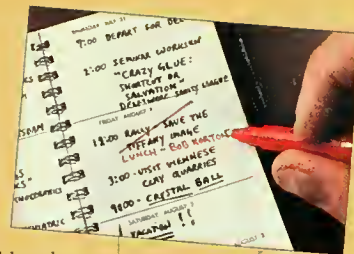 THURSDAY JULY 31
9:00 DEPART FOR DEL
2:00 SEMINAR WORKSHOP
"CRAZY GLUE:
SHORTCUT OR
SALVATION"
LEAGUE
FRIDAY AUGUST 1
12:00 RALLY - SAVE THE
TIFFANY IMAGE
LUNCH - BOB MORTON
3:00 - VISIT VIENNESE
CLAY QUARRIES
9:00 - CRYSTAL BALL
SATURDAY AUGUST 2
VACATION !!